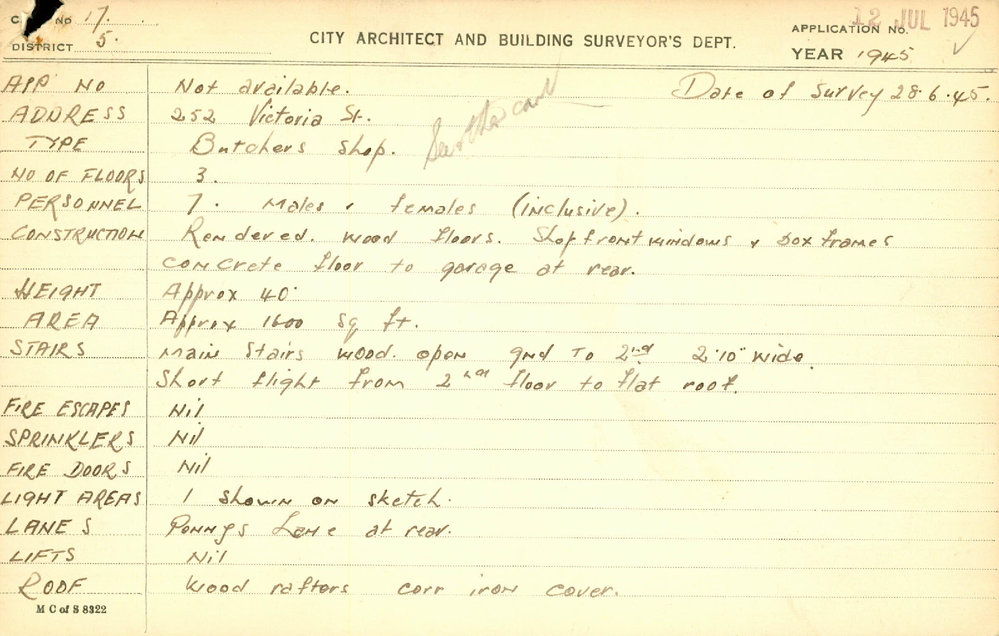 NO 17.
12 JUL 1945
DISTRICT 5.
CITY ARCHITECT AND BUILDING SURVEYOR'S DEPT.
APPLICATION No.
YEAR 1945
APP NO Not available. Date of Survey 28.6.45.
ADDRESS 252 Victoria St.
See other card
TYPE Butchers Shop.
NO OF FLOORS 3.
PERSONNEL 7. Males & females (inclusive).
CONSTRUCTION Rendered. Wood floors. Shopfront windows & box frames
concrete floor to garage at rear.
HEIGHT Approx 40'
AREA Approx 1600 sq ft.
STAIRS Main Stairs wood. open gnd to 2nd 2'10" wide.
Short flight from 2nd floor to flat roof.
FIRE ESCAPES Nil
SPRINKLERS Nil
FIRE DOORS Nil
LIGHT AREAS 1 shown on sketch.
LANES Pennys Lane at rear.
LIFTS Nil
ROOF Wood rafters corr iron cover.
M C of S 8322